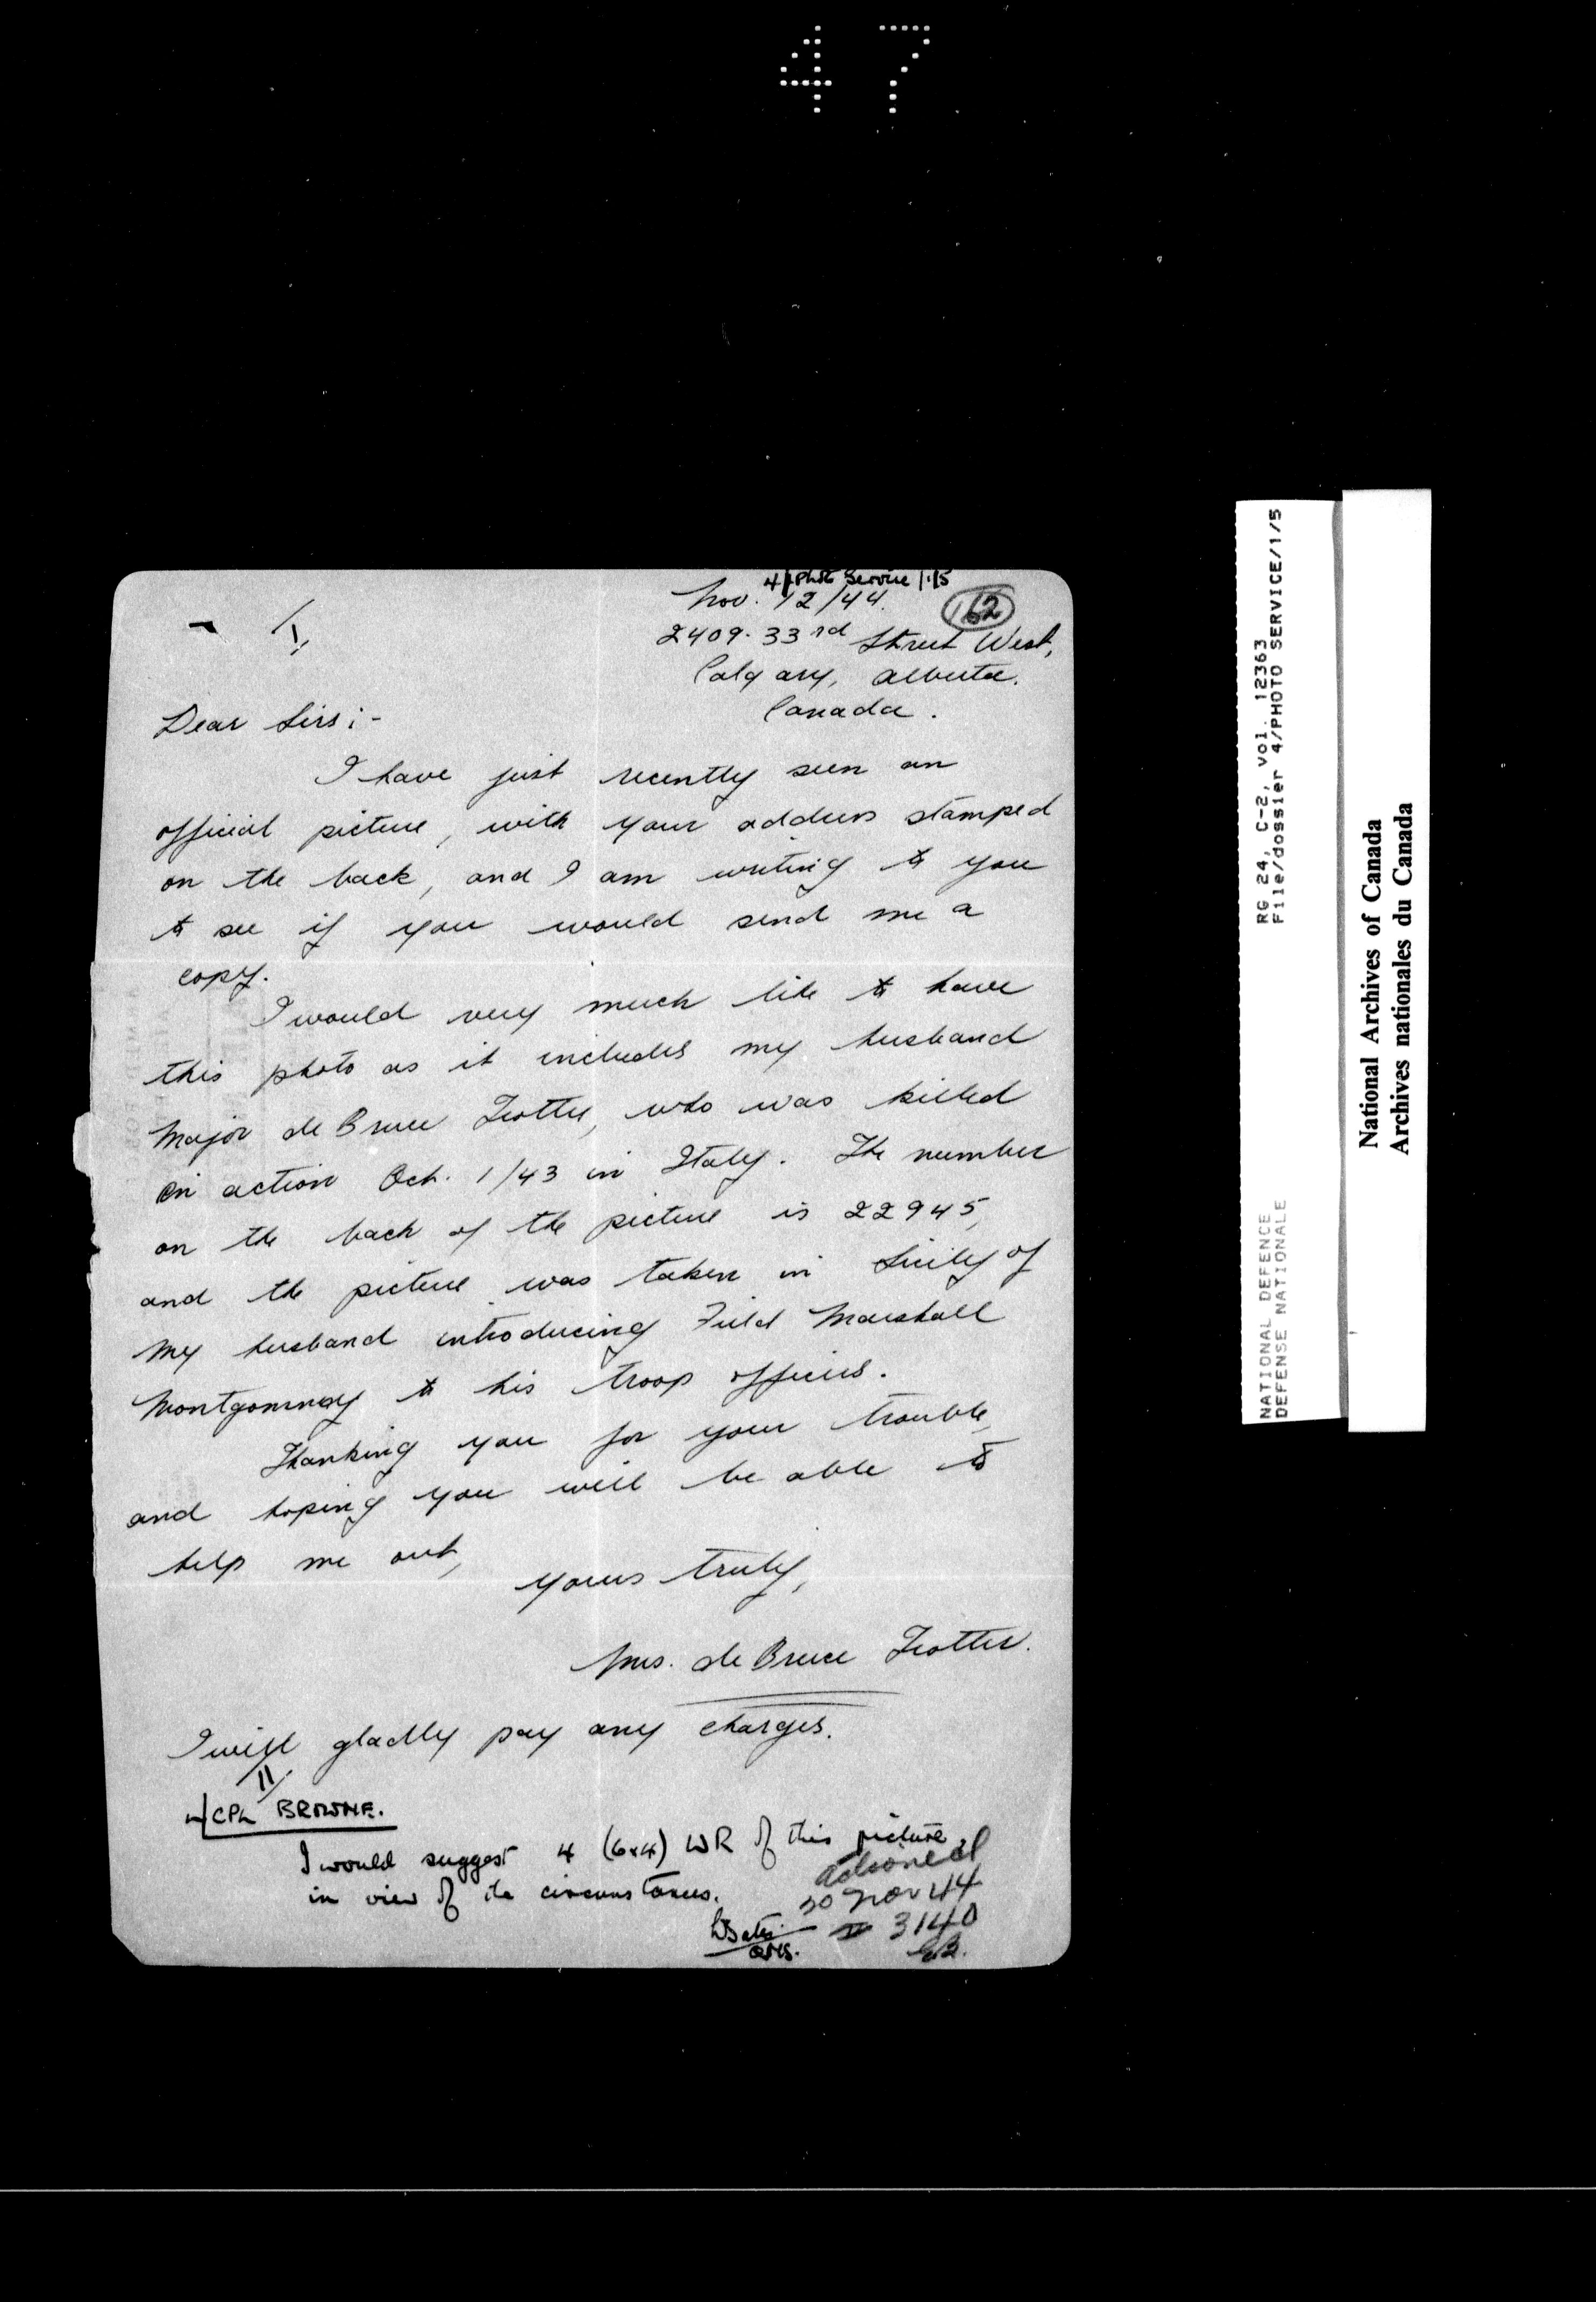 47
4/Photo Service/1/5
Nov. 12/44.
162
2409-33rd Street West,
Calgary, Alberta.
Canada.
I,
Dear Sirs:-
I have just recently seen an
official picture, with your address stamped
on the back, and I am writing to you
to see if you would send me a
copy.
I would very much like to have
this photo as it includes my husband
Major de Bruce Trotter, who was killed
in action Oct. 1/43 in Italy. The number
on the back of the picture is 22945,
and the picture was taken in Sicily of
my husband introducing Field Marshall
Montgomery to his troop officers.
Thanking you for your trouble,
and hoping you will be able to
help me out,
Yours truly,
Mrs. de Bruce Trotter.
I will gladly pay any charges.
II
CPL BROWNE.
I would suggest 4 (6x4) WR of this picture
in view of the circumstances.
QMS.
Actioned
30 Nov 44
3140
RG 24, C-2, vol. 12363
File/dossier 4/PHOTO SERVICE/1/5
NATIONAL DEFENCE
DEFENSE NATIONALE
National Archives of Canada
Archives nationales du Canada